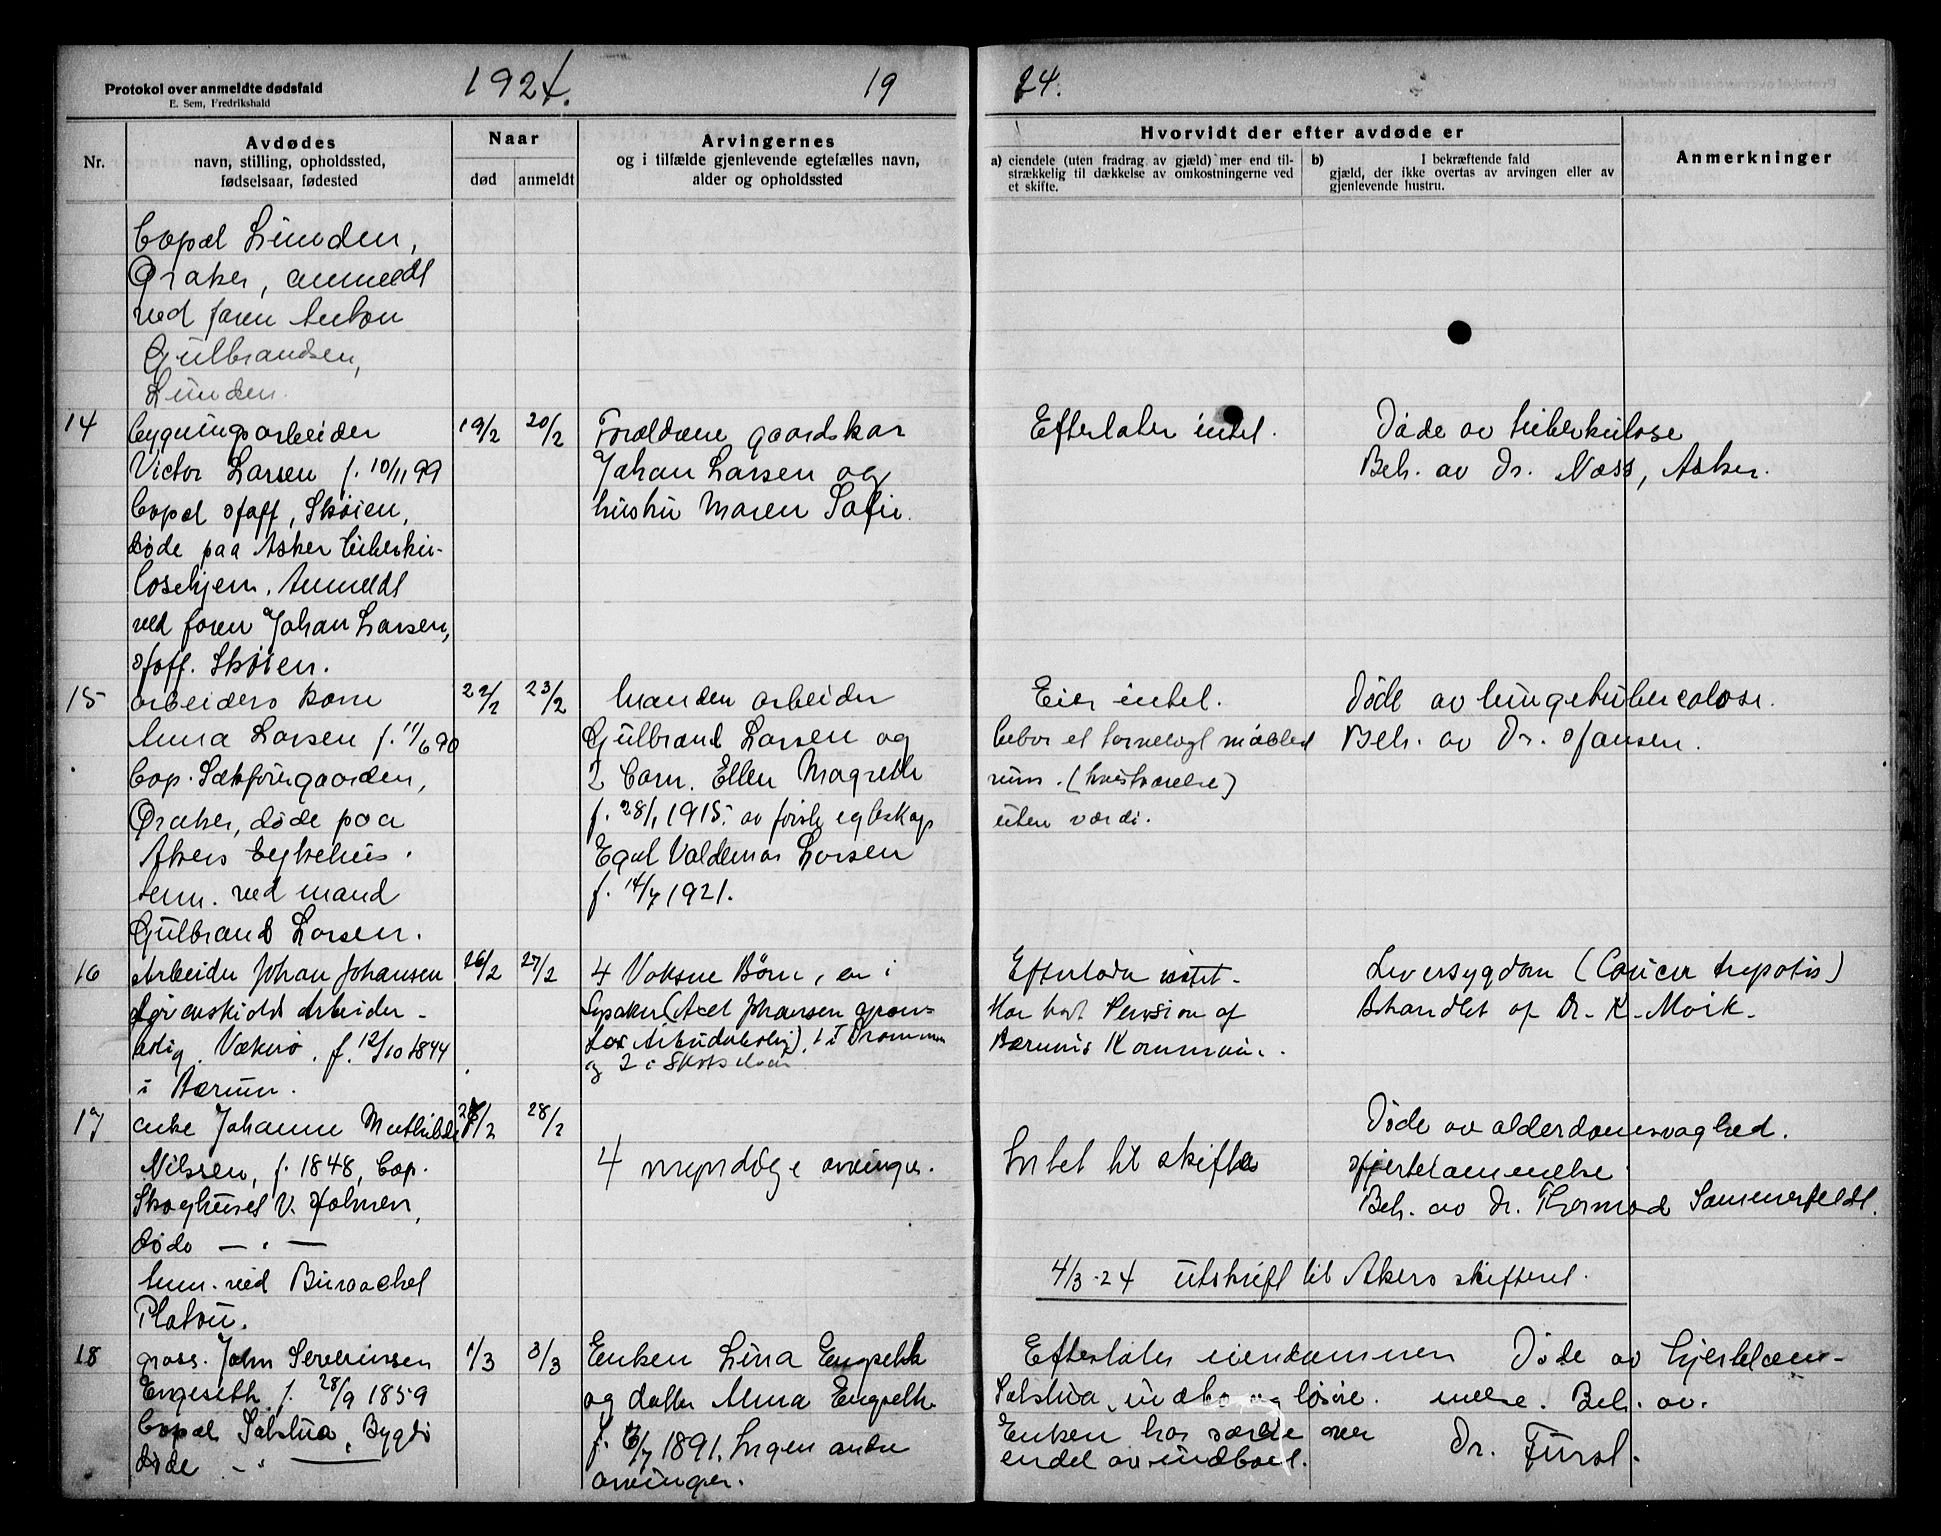 Protokol over anmeldte dødsfald
E. Sem, Fredrikshald
1924.
19
24.
Nr.
Avdødes
navn, stilling, opholdssted,
fødselsaar, fødested
Naar
død
anmeldt
Arvingernes
og i tilfælde gjenlevende egtefælles navn,
alder og opholdssted
Hvorvidt der efter avdøde er
a) eiendele (uten fradrag av gjæld) mer end til-
strækkelig til dækkelse av omkostningerne ved
et skifte.
b) I bekræftende fald
gjæld, der ikke overtas av arvingen eller av
gjenlevende hustru.
Anmerkninger
bopæl Lunden,
Øraker, anmeldt
ved faren Anton
Gulbrandsen,
Lunden.
14
bygningsarbeider
Victor Larsen f. 10/11 99
bopæl Hoff, Skøien,
døde paa Asker tuberku-
losehjem. Anmeldt
ved faren Johan Larsen,
Hoff. Skøien.
19/2
20/2
Forældrene gaardskar
Johan Larsen og
hustru Maren Sofie.
Efterlater intet.
Døde av tuberkulose
Beh. av Dr. Næss, Asker.
15
arbeiders kone
Anna Larsen f. 11/6 90
bop. Sækforingaarden,
Øraker, døde paa
Akers sykehus.
anm. ved mand
Gulbrand Larsen.
22/2
23/2
Manden arbeider
Gulbrand Larsen og
2 barn. Ellen Magrethe
f. 28/1 1915. av første egteskap
Egil Valdemar Larsen
f. 14/7 1921.
Eier intet.
bebor et tarvelogt møbled
rum. (kvistværelse)
uten værdi.
Døde av lungetubercolose.
Beh. av Dr. Hansen.
16
Arbeider Johan Johansen
Løvenskiold Arbeider-
bolig. Vækerø. f. 12/10 1844
i Bærum.
26/2
27/2
4 Voksne Børn, en i
Lysaker (Axel Johansen
Arbeiderbolig). 1 i Drammen
og 2 i Skotselven
Efterlader intet.
Har havt Pension af
Bærums Kommune.
Leversygdom (Cancer hepatis)
Behandlet af Dr. K. Mork.
17
enke Johanne Mathilde
Nilssen, f. 1848, bop.
Skoghuset v. Holmen,
døde — " —
Anm. ved Bureauchef
Platou.
28/2
28/2
4 myndige arvinger.
Intet til skifte
Døde av alderdomsvaghed.
Hjertelammelse
Beh. av Dr. Thormod Sommerfeldt.
4/3-24 utskrift til Akers skifteret.
18
gross. John Severinsen
Engeseth f. 28/9 1859
bopæl Sætstua, Bygdø
døde — " —
1/3
3/3
Enken Lina Engseth
og datter Anna Engseth
f. 6/7 1891. Ingen andre
arvinger.
Efterlater eiendommen
Sætstua, indbo og løsøre.
Enken har særeie over
endel av indboet.
Døde av hjertelam-
melse. Beh. av.
Dr. Fürst.